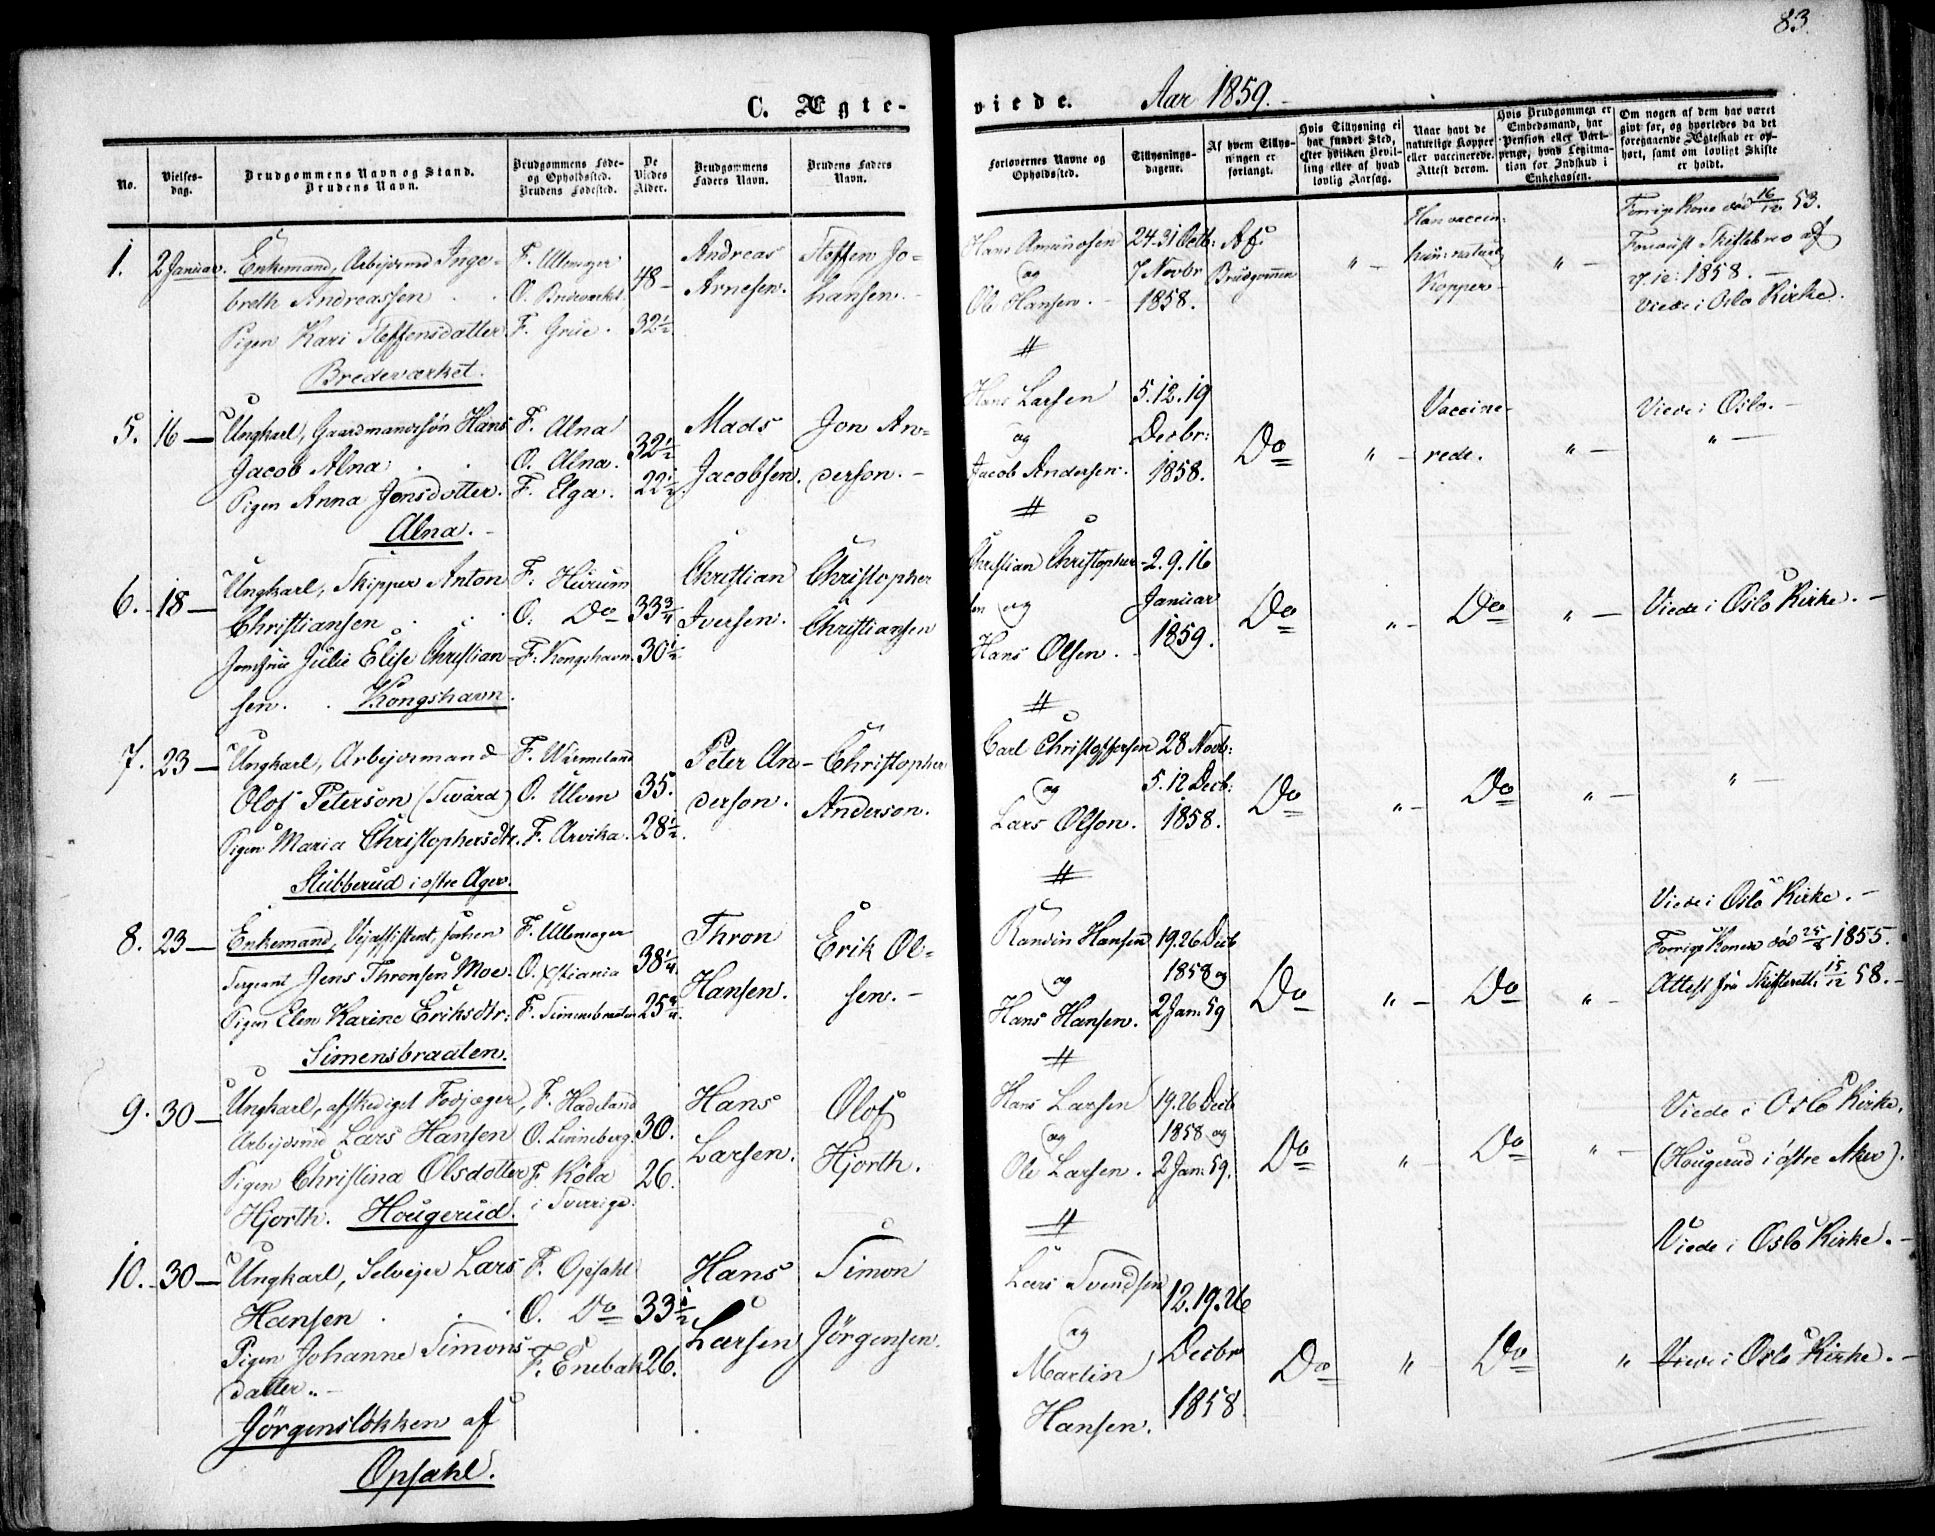 83.
C. Ægte-
viede. Aar 1859.
No.
Vielses-
dag.
Brudgommens Navn og Stand.
Brudens Navn.
Brudgommens Føde-
og Opholdssted.
Brudens Fødested.
De
Viedes
Alder.
Brudgommens
Faders Navn.
Brudens Faders
Navn.
Forlovernes Navne og
Opholdssted.
Tillysnings-
dagene.
Af hvem Tillys-
ningen er
forlangt.
Hvis Tillysning ei
har fundet Sted,
efter hvilken Bevil-
ling eller af hvad
lovlig Aarsag.
Naar havt de
naturlige Kopper
eller vaccinerede.
Attest derom.
Hvis Brudgommen er
Embedsmand, har
Pension eller Vart-
penge, hvad Legitima-
tion for Indskud i
Enkekassen.
Om nogen af dem har været
givt før, og hvorledes da det
foregaaende Ægteskab er op-
hørt, samt om lovligt Skifte
er holdt.
1. 2 Januar.
Enkemand, Arbejdsmd Inge-
breth Andreassen
Pigen Kari Steffensdatter
Bredeværket.
F. Ullensager
O. Bredeværket
F. Grue.
48-
32½
Andreas
Arnesen.
Steffen Jo-
hansen.
Hans Amundsen
og
Ole Hansen.
24-31 Octb:
7 Novbr
1858.
Af
Brudgommen
" -
Han vaccin:
hun: naturl.
Kopper-
" -
Forrige Kone død 16/12 53.
1858.
Viede i Oslo Kirke.
5. 16 —
Ungkarl, Gaardmandssøn Hans
Jacob Alna
Pigen Anna Jonsdotter.
Alna.
F. Alna
O. Alna.
F. Elga.
32½
22½
Mads
Jacobsen.
Jon An-
derson.
Hans Larsen
og
Jacob Andersen.
5.12.19
Decbr:
1858.
Do
" -
Vaccine-
rede.
" -
Viede i Oslo.
" -
6. 18 —
Ungkarl, Skipper Anton
Christiansen
Jomfrue Julie Elise Christian-
sen. Kongshavn.
F. Hurum
O. Do
F. Kongshavn
33¾
30½
Christian
Iversen.
Christopher
Christiansen
Christian Christopher-
sen og
Hans Olsen.
2.9.16
Januar
1859.
Do
" -
Do
" -
Viede i Oslo Kirke.
7. 23 —
Ungkarl, Arbejdsmand
Olof Peterson (Svärd)
Pigen Maria Christophersdtr.
Stubberud i østre Ager.
F. Wärmeland
O. Ulven
F. Arvika.
35.
28½.
Peter An-
derson.
Christopher
Anderson.
Carl Christoffersen
og
Lars Olson.
28 Novb:
5.12 Decb:
1858.
Do
" -
Do
" -
" -
8. 23 —
Enkemand, Vejassistent, forhen
Sergeant Jens Thronsen Moe.
Pigen Elen Karine Eriksdtr:
Simensbraaten.
F. Ullensager
O. Xstiania
F. Simensbraaten
38¼.
25¾.
Thron
Hansen.
Erik Ol-
sen.
Hansen
og
Hans Hansen.
19.26 Decb
1858 og
2 Jan. 59
Do
" -
Do
" -
Viede i Oslo Kirke.
Forrige Konen død 25/8 1855.
Attest fra Skifterett. 15/12 58.
9. 30 —
Ungkarl, afskediget Fodjæger,
Arbejdsmd Lars Hansen
Pigen Christina Olsdotter
Hjorth. Hougerud.
F. Hadeland
O. Linneberg.
F. Köla
i Sverrige.
30.
26.
Hans
Larsen.
Olof
Hjorth.
Hans Larsen
og
Ole Larsen.
19.26 Decb
1858 og
2 Jan: 59.
Do
" -
Do
" -
Viede i Oslo Kirke.
(Hougerud i østre Aker).
10. 30 —
Ungkarl, Selvejer Lars
Hansen
Pigen Johanne Simons-
datter.
Jørgensløkken af
Opsahl.
F. Opsahl
O. Do
F. Enebak
33½
26.
Hans
Larsen
Simon
Jörgensen.
Lars Svendsen
og
Martin
Hansen.
12.19.26
Decbr
1858.
Do
" -
Do
"
Viede i Oslo Kirke.
Viede i Oslo Kirke.